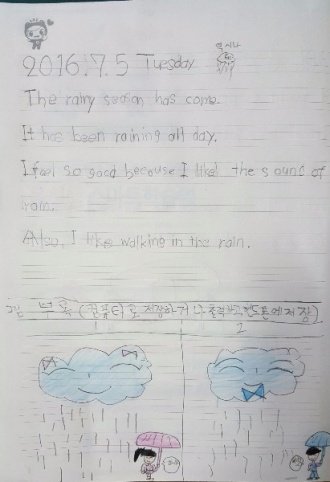 2016.7.5 Tuesday
The rainy season has come.
It has been raining all day.
I feel so good because I like the sound of
rain.
Also, I like walking in the rain.
부록 (컴퓨터로 저장하거나
2